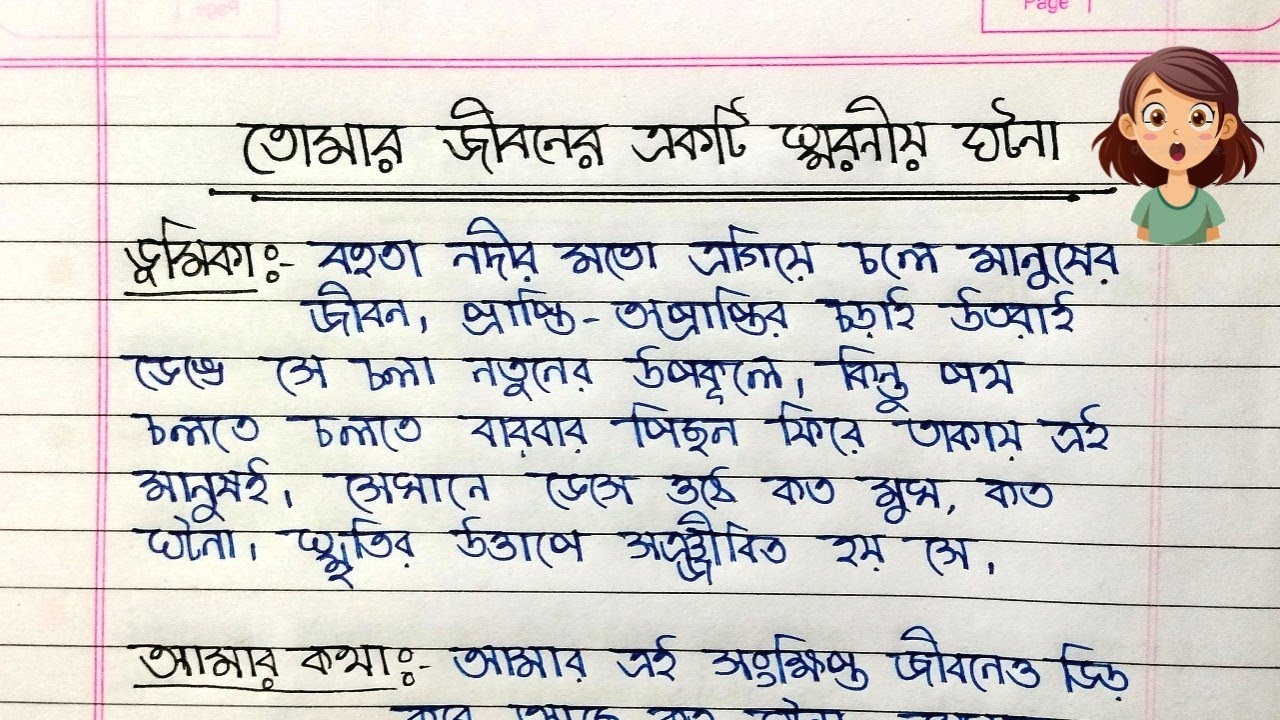 Page 1
তোমার জীবনের একটি স্মরনীয় ঘটনা
ভূমিকাঃ- বহতা নদীর মতো এগিয়ে চলে মানুষের
জীবন, প্রাপ্তি-অপ্রাপ্তির চড়াই উতরাই
ভেঙে সে চলা নতুনের উপকূলে, কিন্তু পথ
চলতে চলতে বারবার পিছন ফিরে তাকায় এই
মানুষই। সেখানে ভেসে ওঠে কত মুখ, কত
ঘটনা। স্মৃতির উত্তাপে সঞ্জীবিত হয় সে।
আমার কথাঃ- আমার এই সংক্ষিপ্ত জীবনেও ভিড়
করে আছে কত ঘটনা